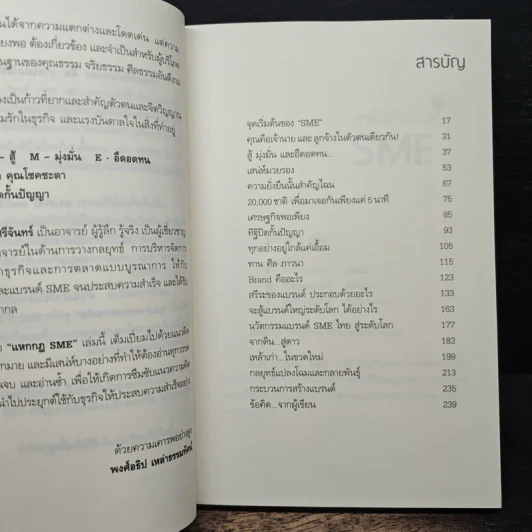 นได้จากความแตกต่างและโดดเด่น แต่ความ
ยงพอ ต้องเกี่ยวข้อง และจำเป็นสำหรับผู้บริโภค
นฐานของคุณธรรม จริยธรรม ศีลธรรมอันดีงาม
งเป็นก้าวที่ยากและสำคัญตัวตนและจิตวิญญาณ
มรักในธุรกิจ และแรงบันดาลใจในสิ่งที่ทำอยู่
– สู้ M – มุ่งมั่น E - อึดอดทน
คุณโชคชะตา
ปิดกั้นปัญญา
รีจันทร์ เป็นอาจารย์ ผู้รู้ลึก รู้จริง เป็นผู้เชี่ยวชาญ
จารย์ในด้านการวางกลยุทธ์ การบริหารจัดการ
ธุรกิจและการตลาดแบบบูรณาการ ให้กับ
ะแบรนด์ SME จนประสบความสำเร็จ และได้รับ
ากล
"แหกกฎ SME" เล่มนี้ เต็มเปี่ยมไปด้วยแนวคิด
กมาย และมีเสน่ห์บางอย่างที่ทำให้ต้องอ่านทุกวรรค
นจบ และอ่านซ้ำ เพื่อให้เกิดการซึมซับแนวความคิด
นำไปประยุกต์ใช้กับธุรกิจให้ประสบความสำเร็จอย่าง
ด้วยความเคารพอย่างสูง
พงศ์อธิป เหล่าธรรมทัศน์
สารบัญ
จุดเริ่มต้นของ "SME" 17
คุณคือเจ้านาย และ ลูกจ้างในตัวตนเดียวกัน! 31
สู้ มุ่งมั่น และอึดอดทน... 37
เสน่ห์มวยรอง 53
ความยั่งยืนนั้นสำคัญไฉน 67
20,000 ชาติ เพื่อมาเจอกันเพียงแค่ 5 นาที 75
เศรษฐกิจพอเพียง 85
ทิฐิปิดกั้นปัญญา 93
ทุกอย่างอยู่ใกล้แค่เอื้อม 105
ทาน ศีล ภาวนา 115
Brand คืออะไร 123
สรีระของแบรนด์ ประกอบด้วยอะไร 133
จะสู้แบรนด์ใหญ่ระดับโลก ได้อย่างไร 163
นวัตกรรมแบรนด์ SME ไทย สู่ระดับโลก 177
จากดิน...สู่ดาว 183
เหล้าเก่า...ในขวดใหม่ 199
กลยุทธ์แปลงโฉมและกลายพันธุ์ 213
กระบวนการสร้างแบรนด์ 235
ข้อคิด...จากผู้เขียน 239